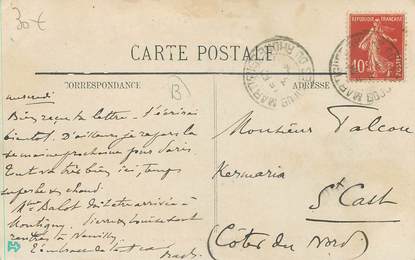 30€
CARTE POSTALE
CORRESPONDANCE
ADRESSE
B
RÉPUBLIQUE FRANÇAISE
10c
POSTES
mercredi
Bien reçu ta lettre. T'écrirai
bientôt. D'ailleurs je repars la
semaine prochaine pour Paris
Tout va très bien ici, temps
superbe & chaud.
Mme Balot doit être arrivée à
Montigny. Pierre & Louise sont
rentrés à Neuilly
Monsieur Falcou
Kermaria
St Cast
(Côtes du Nord)